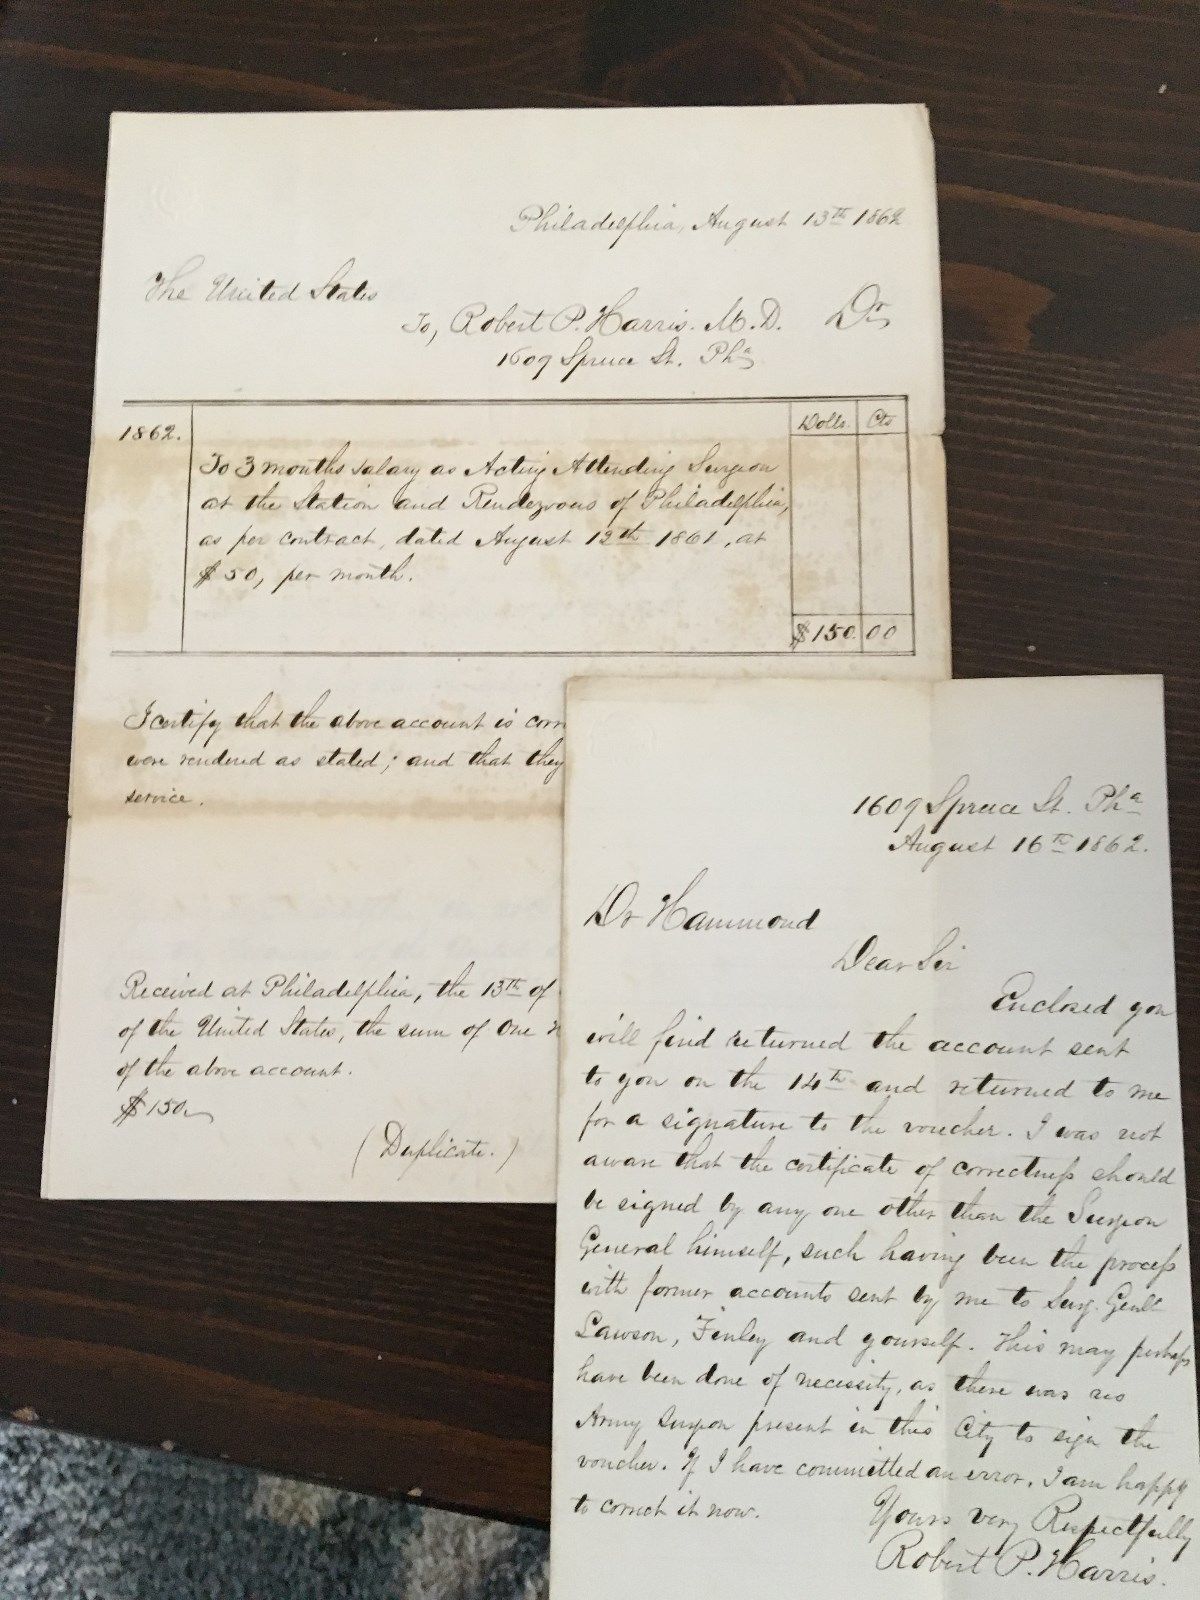 Philadelphia, August 13th 1862
The United States
To, Robert P. Harris. M.D. Dr
1609 Spruce St. Pha
1862.
Dolls. Cts
To 3 months salary as Acting Attending Surgeon
at the Station and Rendezvous of Philadelphia,
as per contract, dated August 12th 1861, at
$50, per month.
$150 00
I certify that the above account is corr
were rendered as stated; and that they
service.
Received at Philadelphia, the 13th of
of the United States, the sum of One
of the above account.
$150
(Duplicate.)
1609 Spruce St. Pha
August 16th 1862.
Dr Hammond
Dear Sir
Enclosed you
will find returned the account sent
to you on the 14th and returned to me
for a signature to the voucher. I was not
aware that the certificate of correctness should
be signed by any one other than the Surgeon
General himself, such having been the process
with former accounts sent by me to Surg. Genls
Lawson, Finley and yourself. This may perhaps
have been done of necessity, as there was no
Army Surgeon present in this City to sign the
voucher. If I have committed an error, I am happy
to correct it now.
Yours very Respectfully
Robert P. Harris.